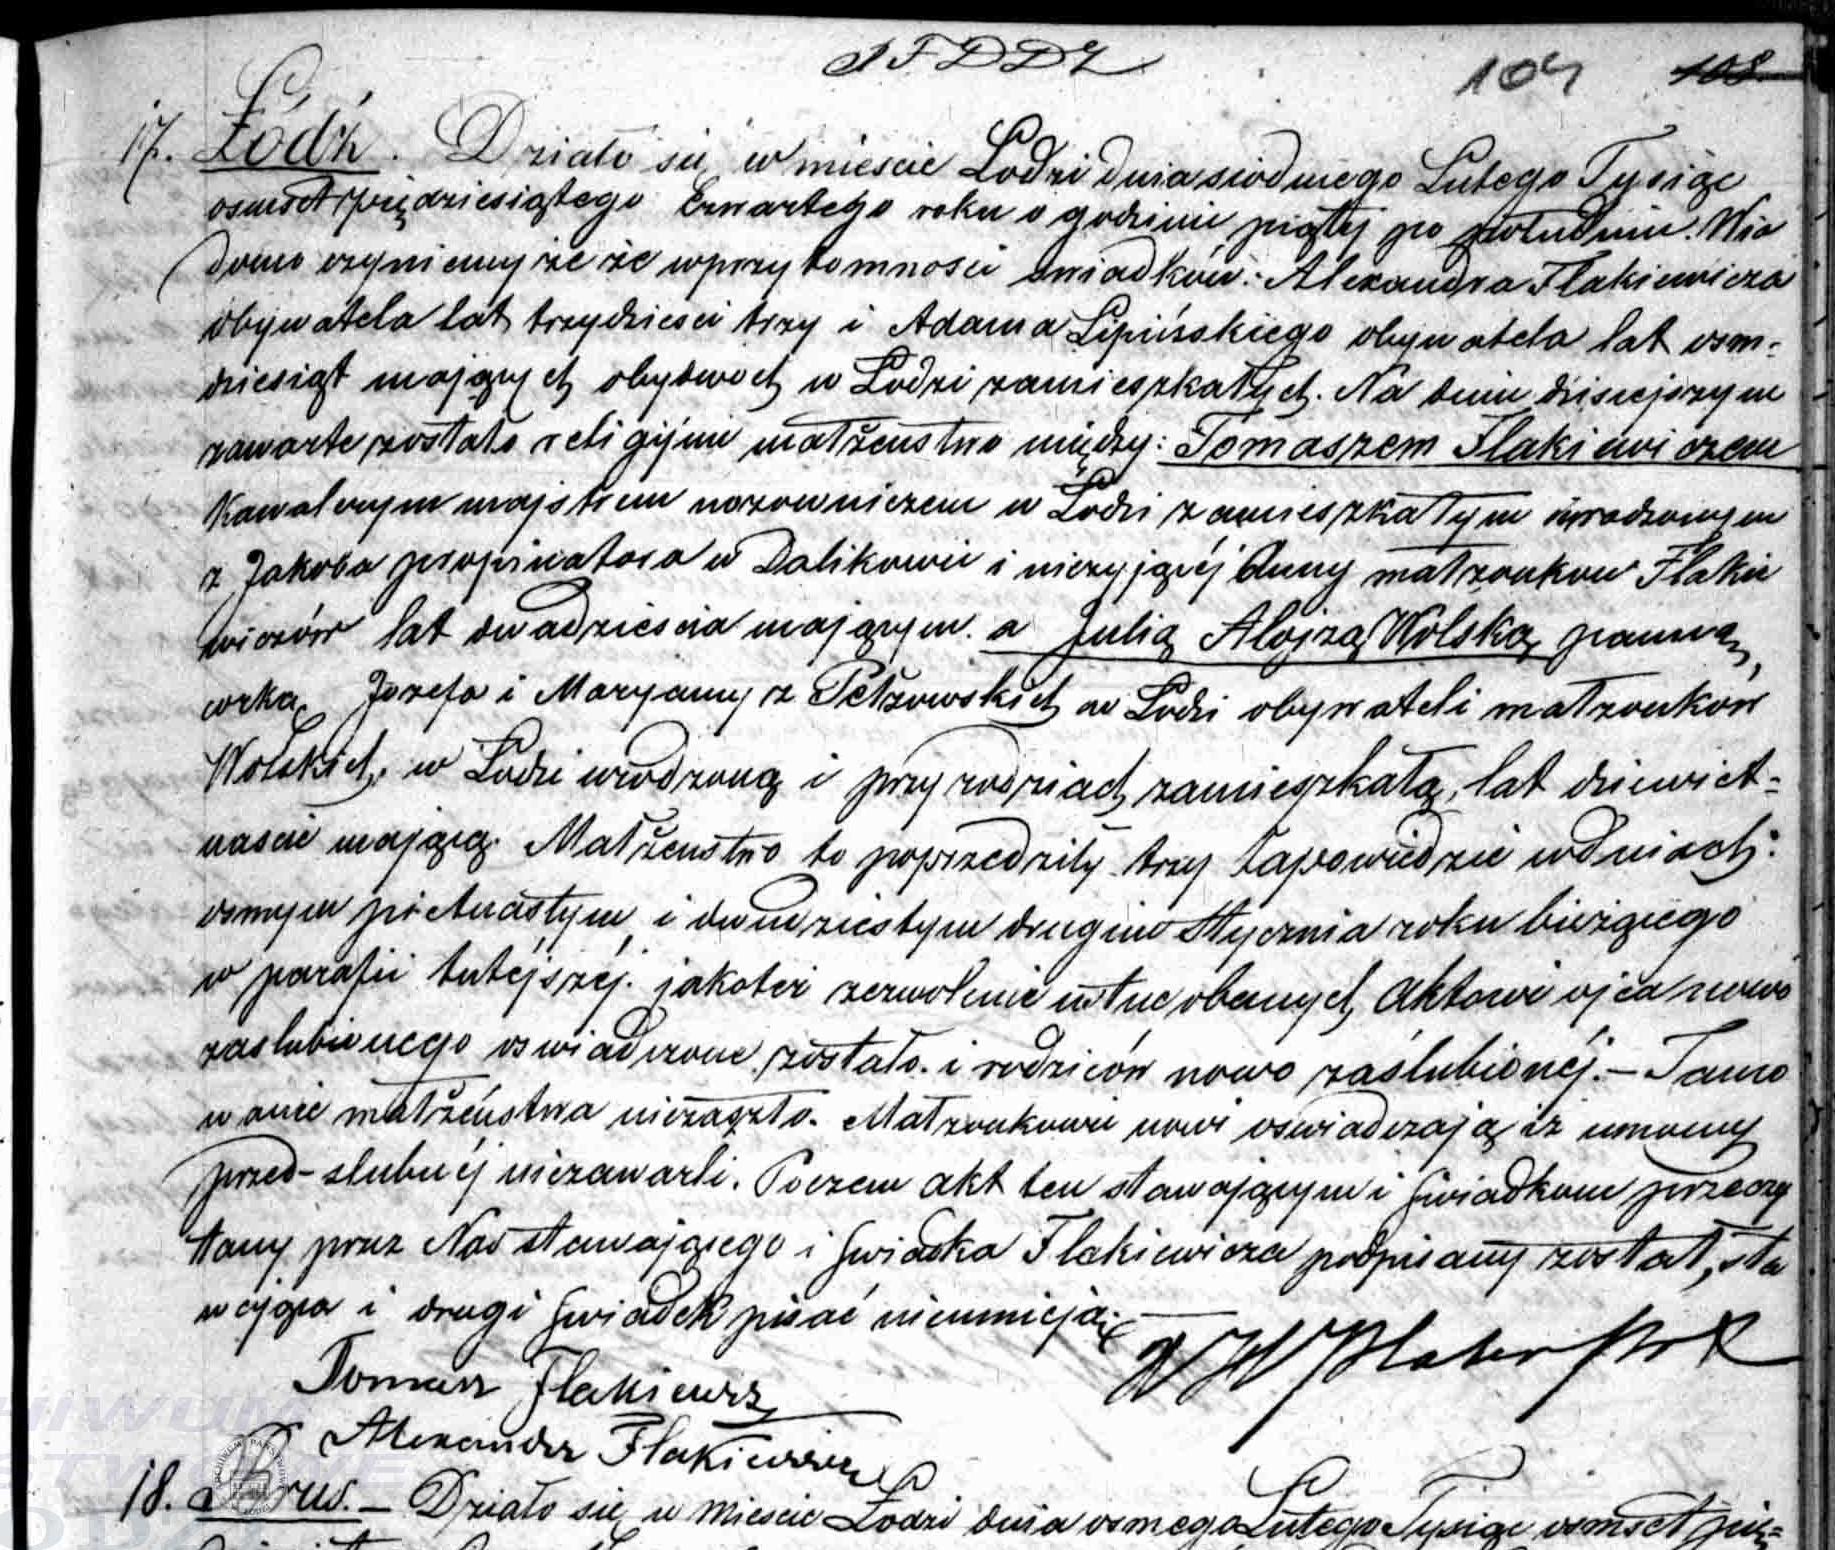 104 108
17. Łódź. Działo się w mieście Łodzi dnia siódmego Lutego Tysiąc
osmset piędziesiątego Czwartego roku o godzinie piątej po południu. Wia
domo czyniemy że że wprzytomności swiadków: Alexandra Flakiewicza
obywatela lat trzydzieści trzy i Adama Lipińskiego obywatela lat osm-
dziesiąt mających obydwóch w Łodzi zamieszkałych. Na dniu dzisiejszym
zawarte zostało religijne małżeństwo między: Tomaszem Flakiewiczem
Kawalerem majstrem w Łodzi zamieszkałym urodzonym
z Jakoba propinatora w Dalikowie i nieżyjącéj Anny małżonków Flakie
wiczów lat dwadzieścia mającym. a Julią Alojzą Wolską panną,
córką Jozefa i Maryanny z w Łodzi obywateli małżonków
Wolskich. w Łodzi urodzoną i przy rodzicach zamieszkałą, lat dziewięt-
naście mającą. Małżeństwo to poprzedziły trzy zapowiedzie w dniach:
osmym piętnastym i dwudziestym drugim Stycznia roku bieżącego
w parafii tutéjszéj. jakoteż zezwolenie ustne obecnych Aktowi ojca nowo
zaslubionego oswiadczone zostało. i rodziców nowo zaślubionéj. — Tamo
wanie małżeństwa niezaszło. Małżonkowie nowi oswiadczają iż umowy
przed-slubnéj niezawarli. Poczem akt ten stawającym i swiadkom przeczy
tany przez Nas stawającego i swiadka Flakiewicza podpisany został, sta
wająca i drugi swiadek pisać nieumieją. —
Tomasz Flakiewicz
Alexander Flakiewicz
18. Brus. — Działo się w Mieście Łodzi dnia osmego Lutego Tysiąc osmset pię=